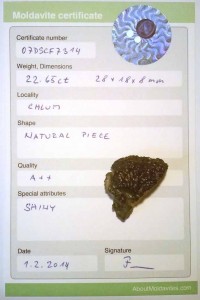 Moldavite certificate
Certificate number
07DSCF7314
Weight, Dimensions
22.65ct 28x18x8mm
Locality
CHLUM
Shape
NATURAL PIECE
Quality
A++
Special attributes
SHINY
Date
Signature
1.2.2014
AboutMoldavites.com